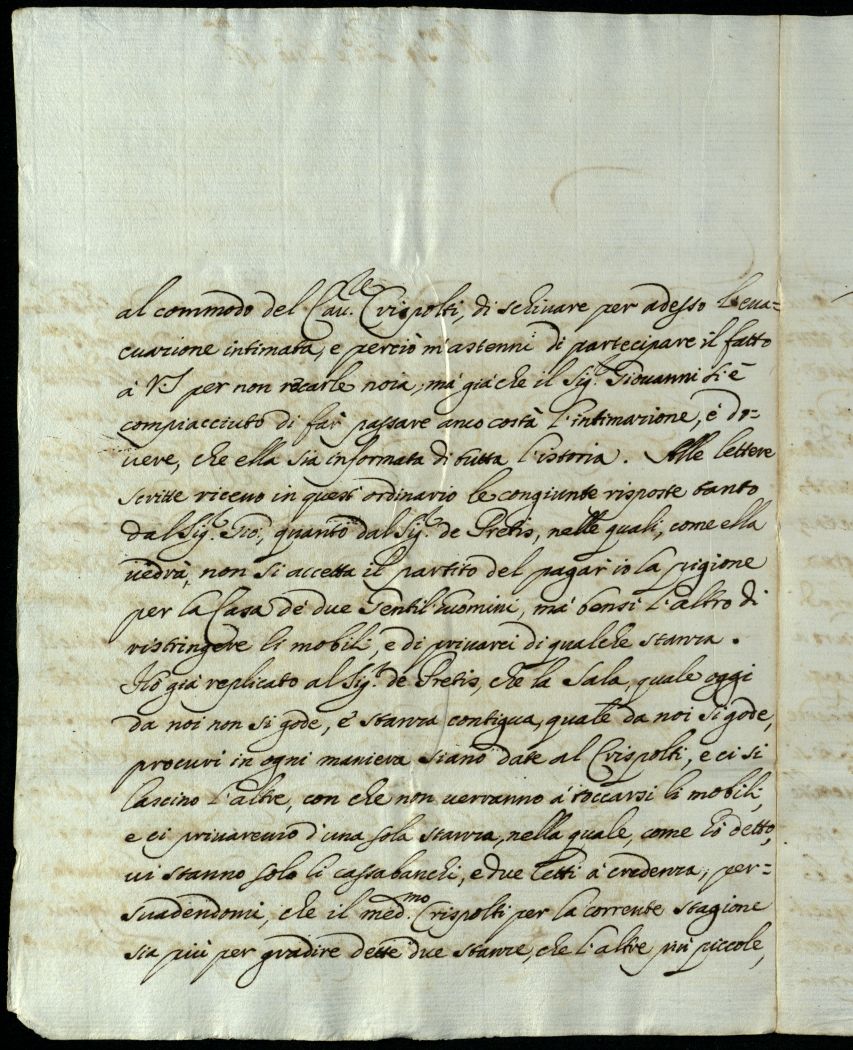 al commodo del Cav.re Crispolti, di schivare per adesso l'eva=
cuazione intimata, e perciò m'astenni di partecipare il fatto
à V.S per non recarle noia, mà già che il Sig.r Giovanni si è
compiacciuto di far passare anco costà l'intimazione, è do=
vere, che ella sia informata di tutta l'istoria. Alle lettere
scritte ricevo in quest'ordinario le congiunte risposte tanto
dal Sig.r Gio:, quanto dal Sig.r de Pretis, nelle quali, come ella
vedrà, non si accetta il partito del pagar'io la pigione
per la Casa de due Gentil'uomini, mà bensì l'altro di
ristringere li mobili, e di privarci di qualche stanza.
Hò già replicato al Sig.r de Pretis, che la Sala, quale oggi
da noi non si gode, e stanza contigua, quale da noi si gode,
procuri in ogni maniera siano date al Crispolti, e ci si
lascino l'altre, con che non verranno à toccarsi li mobili,
e ci privaremo d'una sola stanza, nella quale, come hò detto,
vi stanno solo li cassabanchi, e due letti à credenza, per=
suadendomi, che il med.mo Crispolti per la corrente stagione
sia più per gradire dette due stanze, che l'altre più piccole,